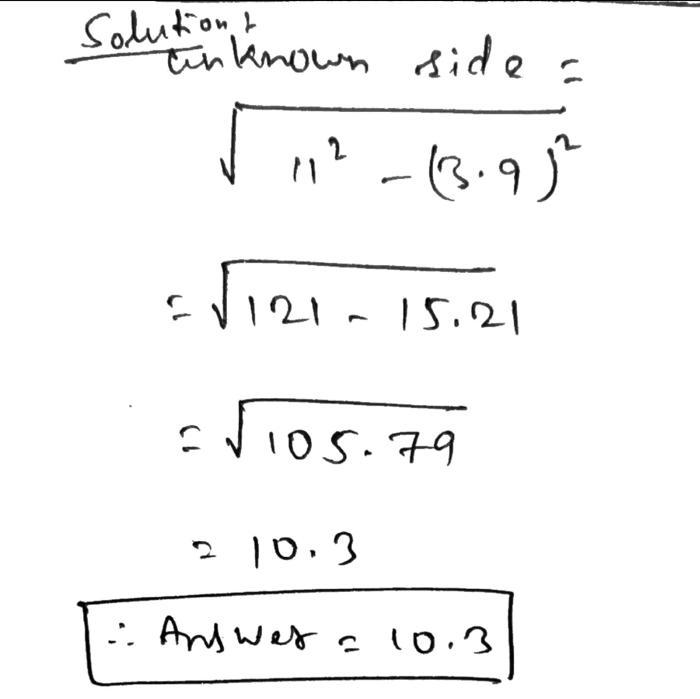 Solution:
unknown side =
√11² - (3.9)²
= √121 - 15.21
= √105.79
= 10.3
∴ Answer = 10.3